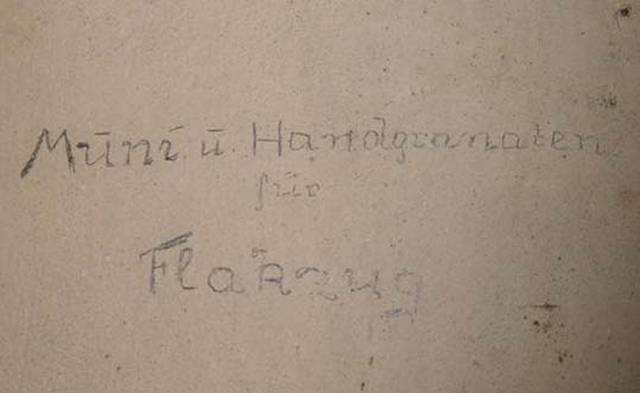 Muni ū Handgranaten
für
Flakzug